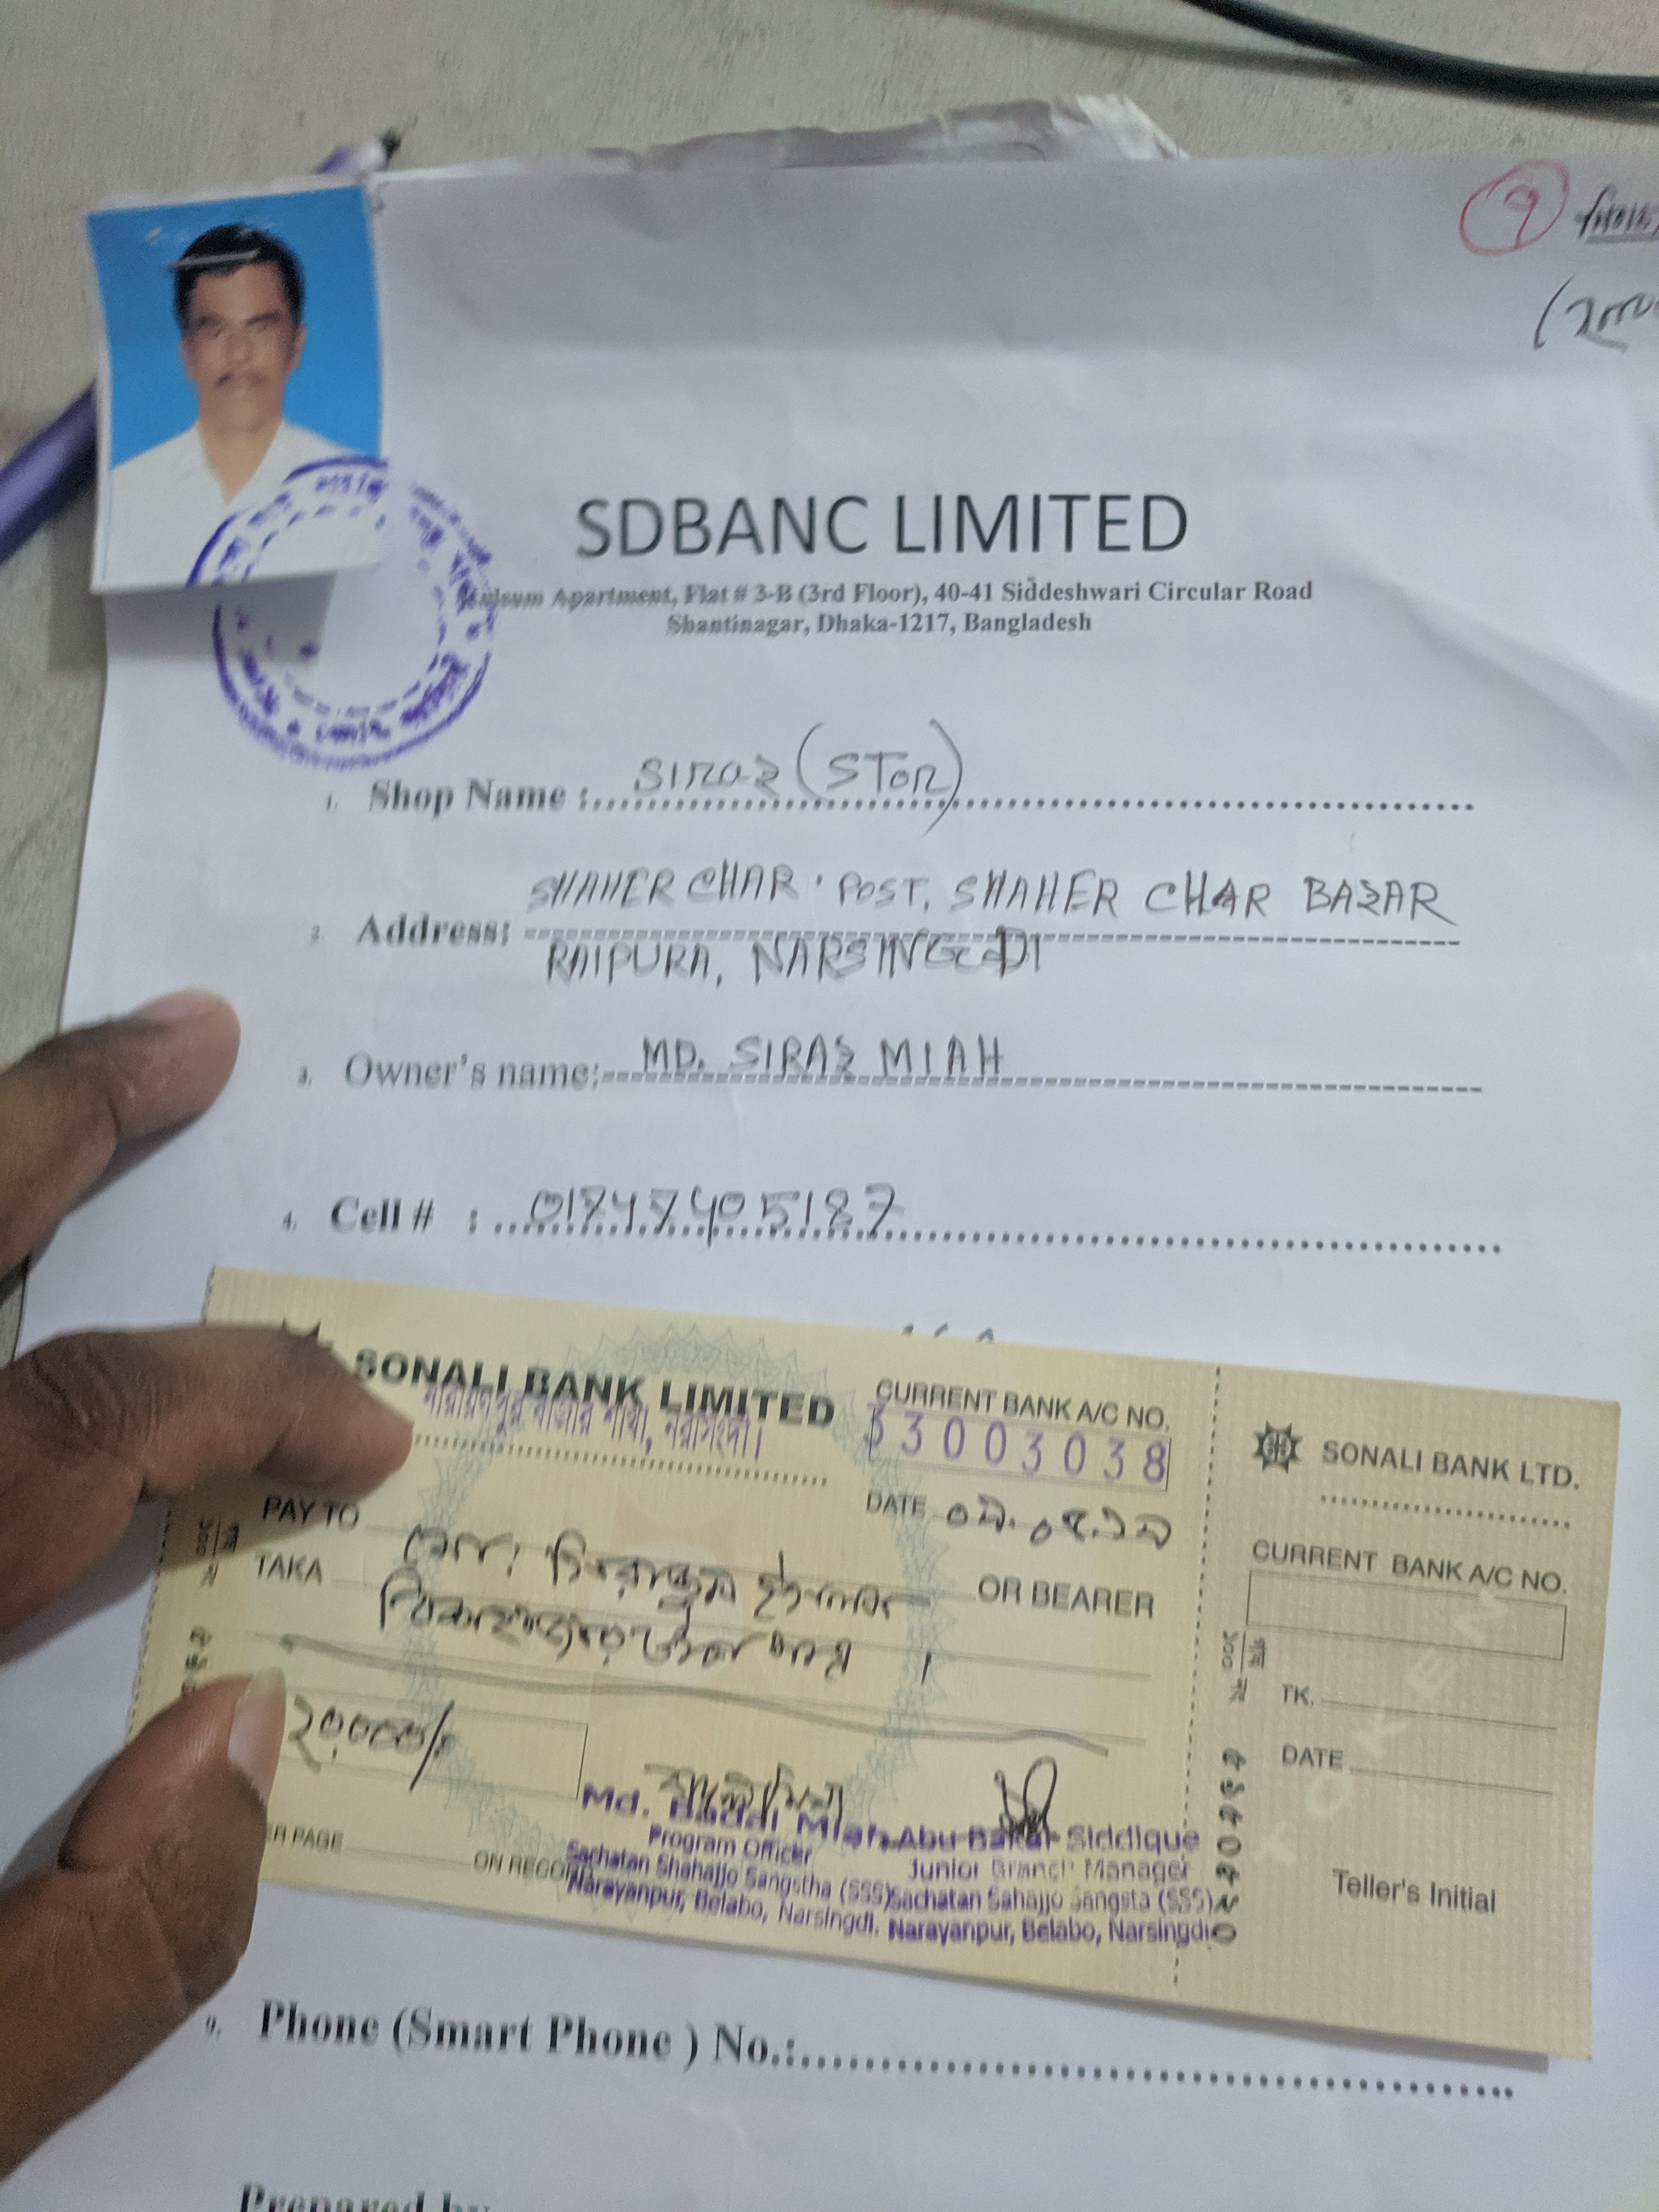 ৭
SDBANC LIMITED
Kulsum Apartment, Flat # 3-B (3rd Floor), 40-41 Siddeshwari Circular Road
Shantinagar, Dhaka-1217, Bangladesh
1. Shop Name : SIRAZ (STOR)
2. Address: SHAHER CHAR. POST. SHAHER CHAR BAZAR
RAIPURA, NARSINGDI
3. Owner's name: MD. SIRAZ MIAH
4. Cell # : 01747405187
SONALI BANK LIMITED
নারায়ণপুর বাজার শাখা, নরসিংদী।
CURRENT BANK A/C NO.
33003038
DATE
PAY TO
TAKA
OR BEARER
২০,০০০/=
ER PAGE
ON RECORD
Md. Badal Miah
Program Officer
Sachatan Shahajjo Sangstha (SSS)
Narayanpur, Belabo, Narsingdi.
Abu Bakar Siddique
Junior Branch Manager
Sachatan Sahajjo Sangsta (SSS)
Narayanpur, Belabo, Narsingdi
SONALI BANK LTD.
CURRENT BANK A/C NO.
TK.
DATE
TOKEN
Teller's Initial
9. Phone (Smart Phone ) No.:
Prepared by